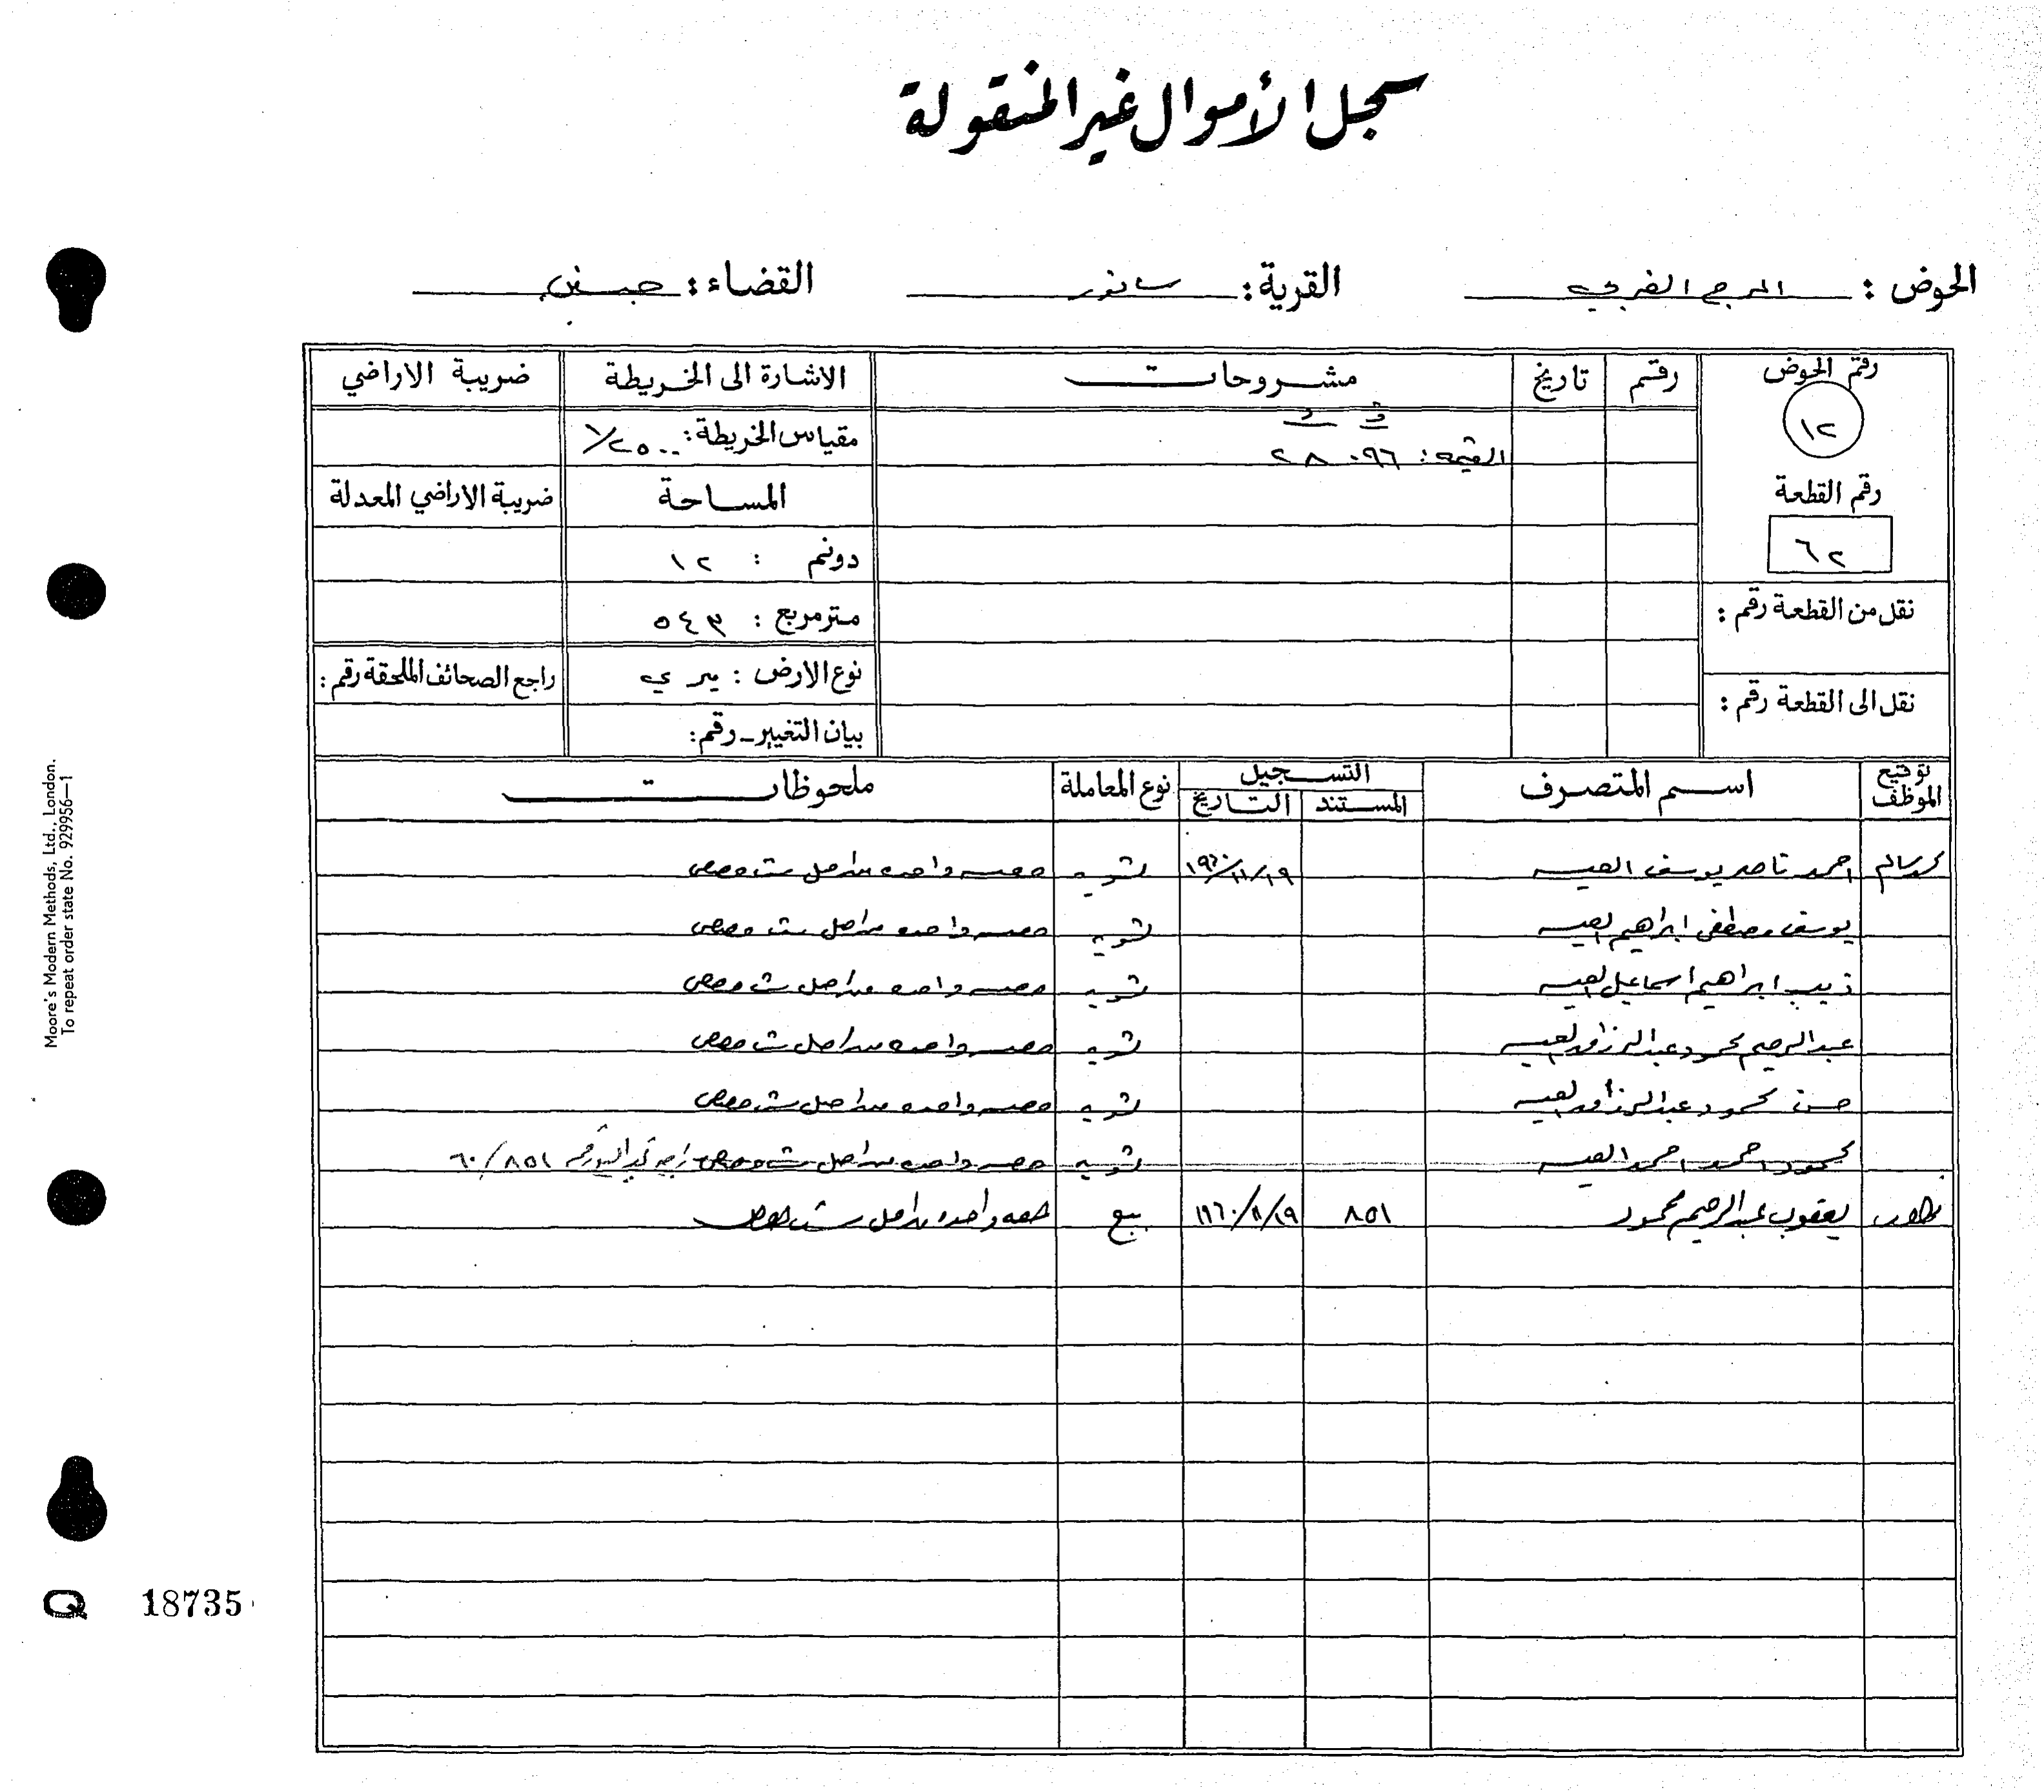 سجل الأموال غير المنقولة
الحوض : المرج الغربي القرية : سانور القضاء : جنين
رقم الحوض رقم تاريخ مشروحات الاشارة الى الخريطة ضريبة الاراضي
١٢ ف د مقياس الخريطة : ١/٢٥٠٠
القيمة : ٠٩٦ ٢٨
رقم القطعة المساحة ضريبة الاراضي المعدلة
٦٢ دونم : ١٢
نقل من القطعة رقم : متر مربع : ٥٤٣
نوع الارض : ميري راجع الصحائف الملحقة رقم :
نقل الى القطعة رقم : بيان التغيير - رقم :
توقيع الموظف اسم المتصرف التسجيل نوع المعاملة ملحوظات
المستند التاريخ
احمد ناصر يوسف العيسه ١٩٦٠/١١/١٩ تسويه حصه واحده من اصل ست حصص
يوسف مصطفى ابراهيم العيسه تسويه حصه واحده من اصل ست حصص
ذيب ابراهيم اسماعيل العيسه تسويه حصه واحده من اصل ست حصص
عبد الرحيم محمود عبد الرزاق العيسه تسويه حصه واحده من اصل ست حصص
حسن محمود عبد الرزاق العيسه تسويه حصه واحده من اصل ست حصص
محمود احمد احمد العيسه تسويه حصه واحده من اصل ست حصص ٦٠/٨٥١
يعقوب عبد الرحيم محمود ٨٥١ ١٩٦٠/١١/١٩ بيع حصه واحده من اصل ست حصص
Moore's Modern Methods, Ltd., London.
To repeat order state No. 9299556—1
Q 18735